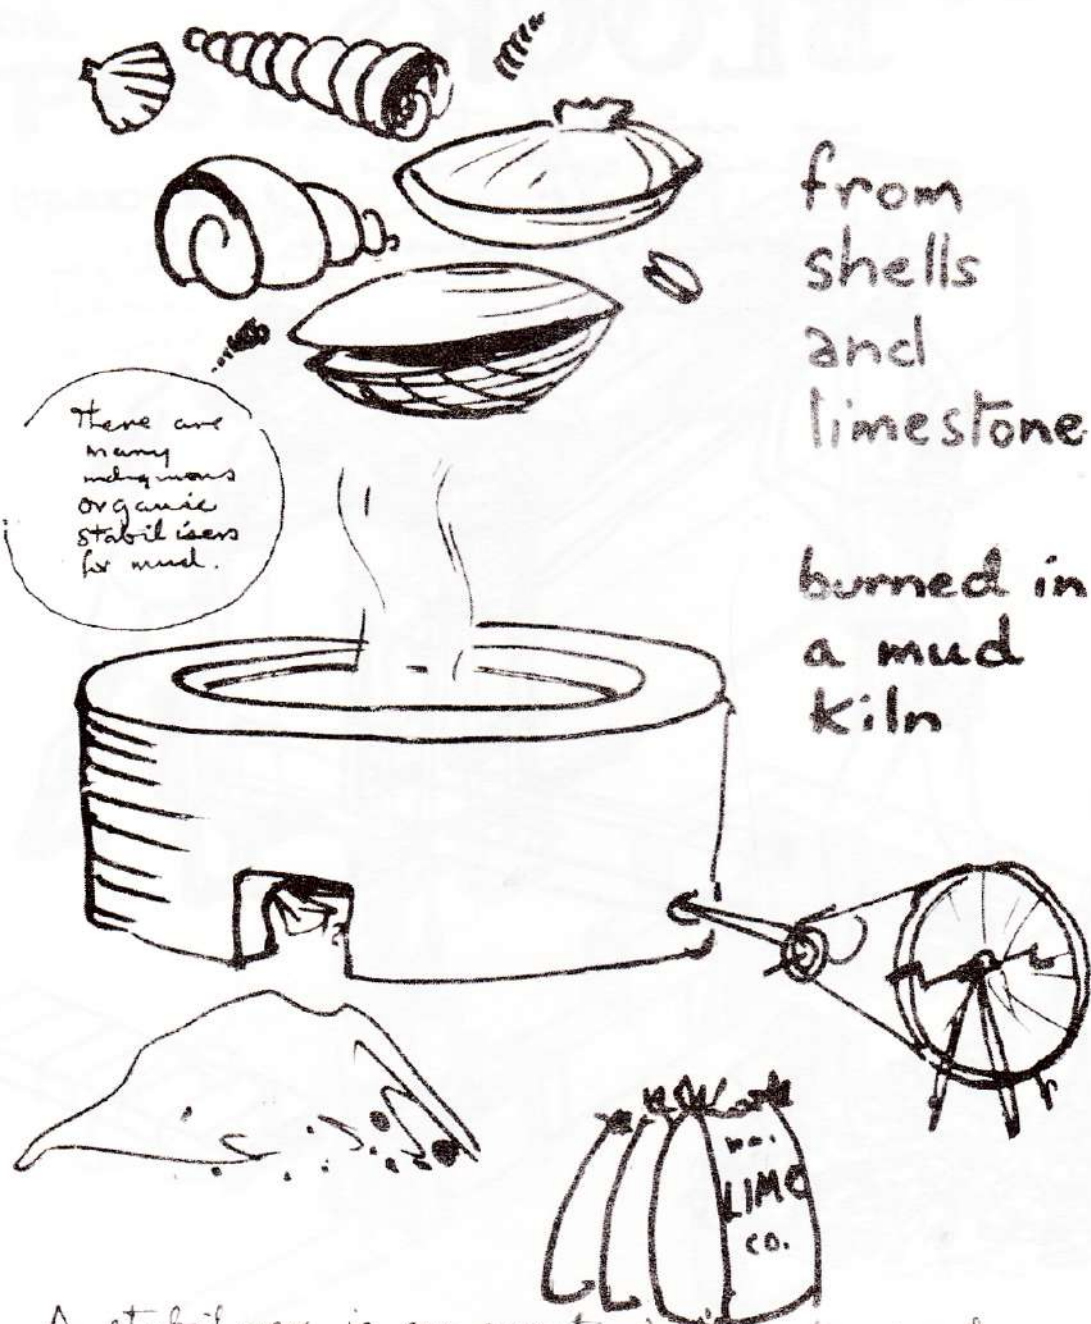 from
shells
and
limestone
There are
many
indigenous
organic
stabilisers
for mud.
burned in
a mud
kiln
LIME
CO.
A stabiliser is